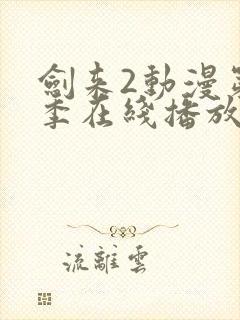 劍来2動漫第
季在綫播放
流離雲